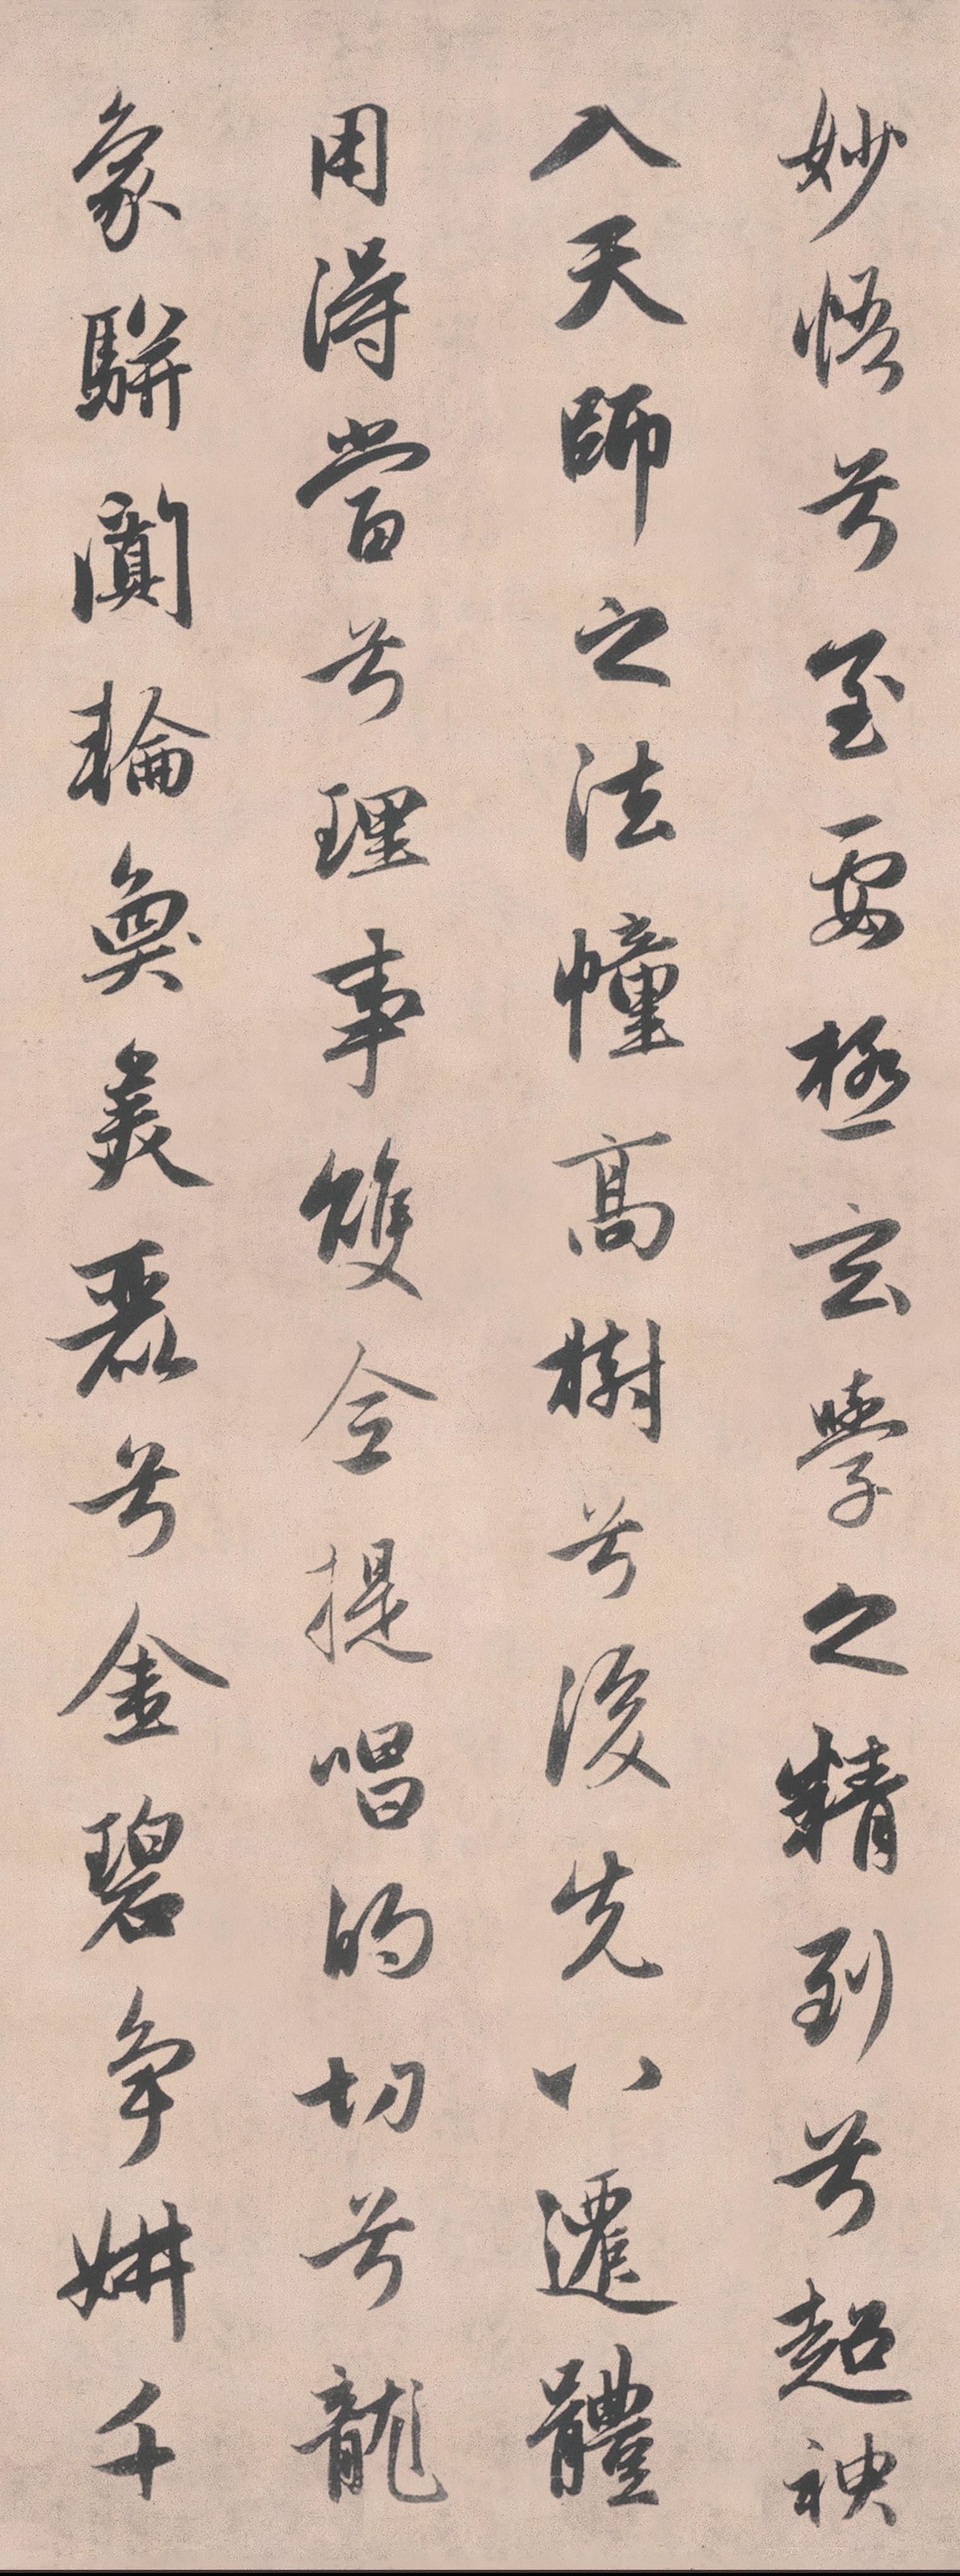 妙悟兮至要極玄學之精到兮超神
入天師之法幢高樹兮後先以遷體
用得當兮理事雙全提唱的切兮龍
象駢闐輪奐美麗兮金碧爭妍千